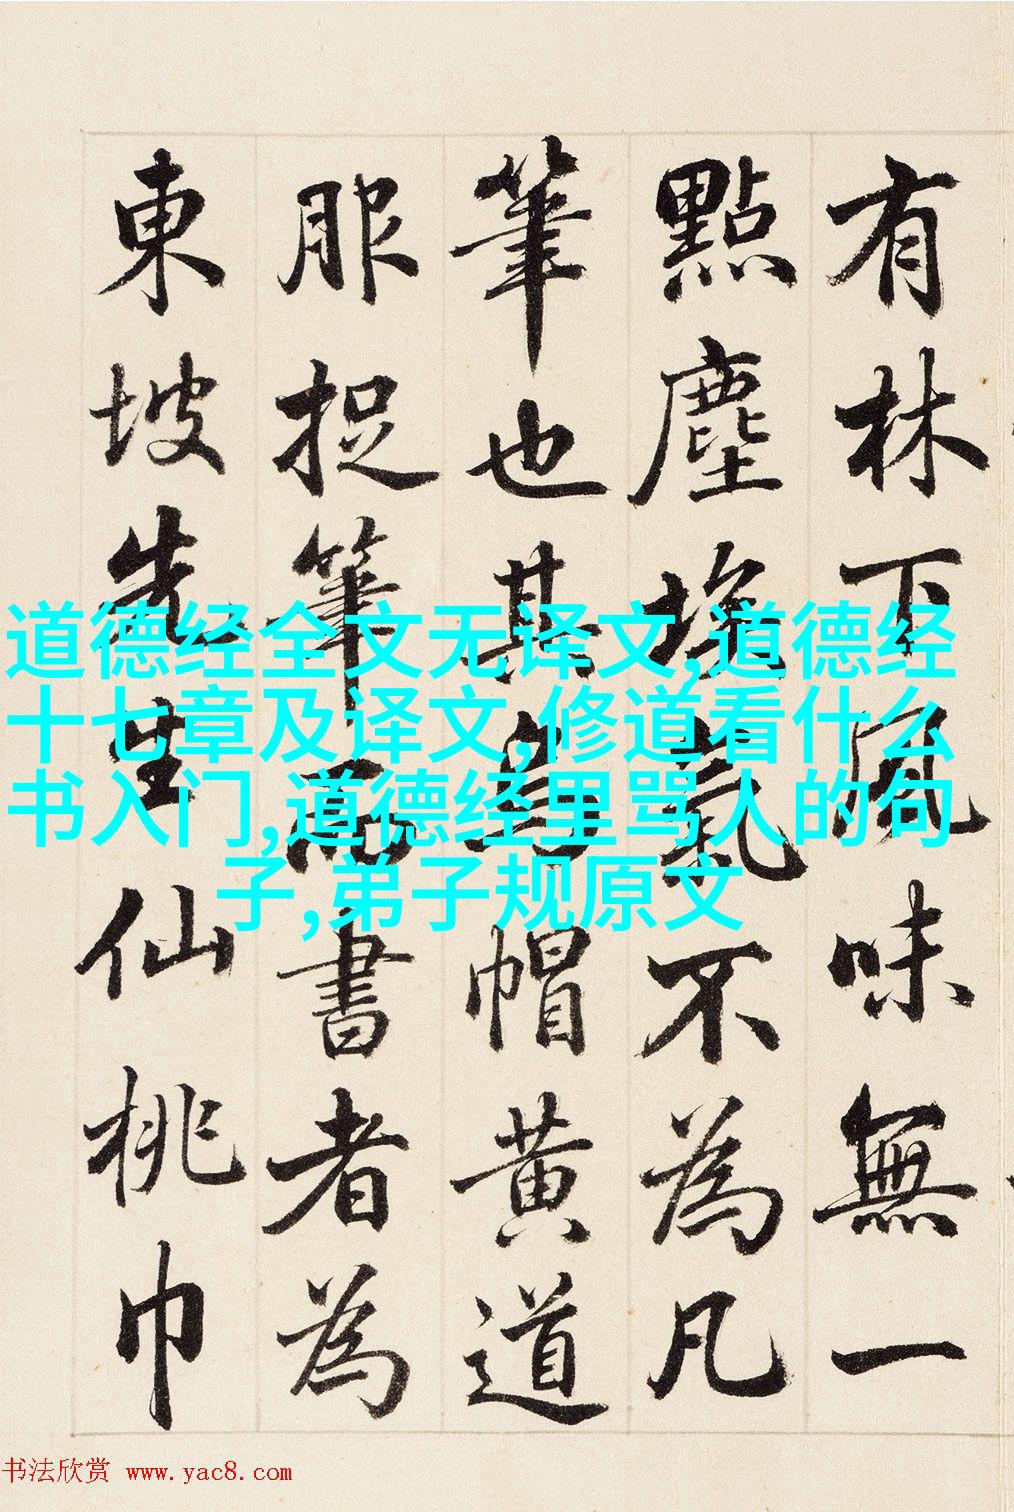 有林下风味無一
點塵埃氣不為凡
筆也其烏帽黄道
服捉筆而書者為
東坡先生仙桃巾
道德经全文无译文,道德经
十七章及译文,修道看什么
书入门,道德经里骂人的句
子,弟子规原文
书法欣赏 www.yac8.com